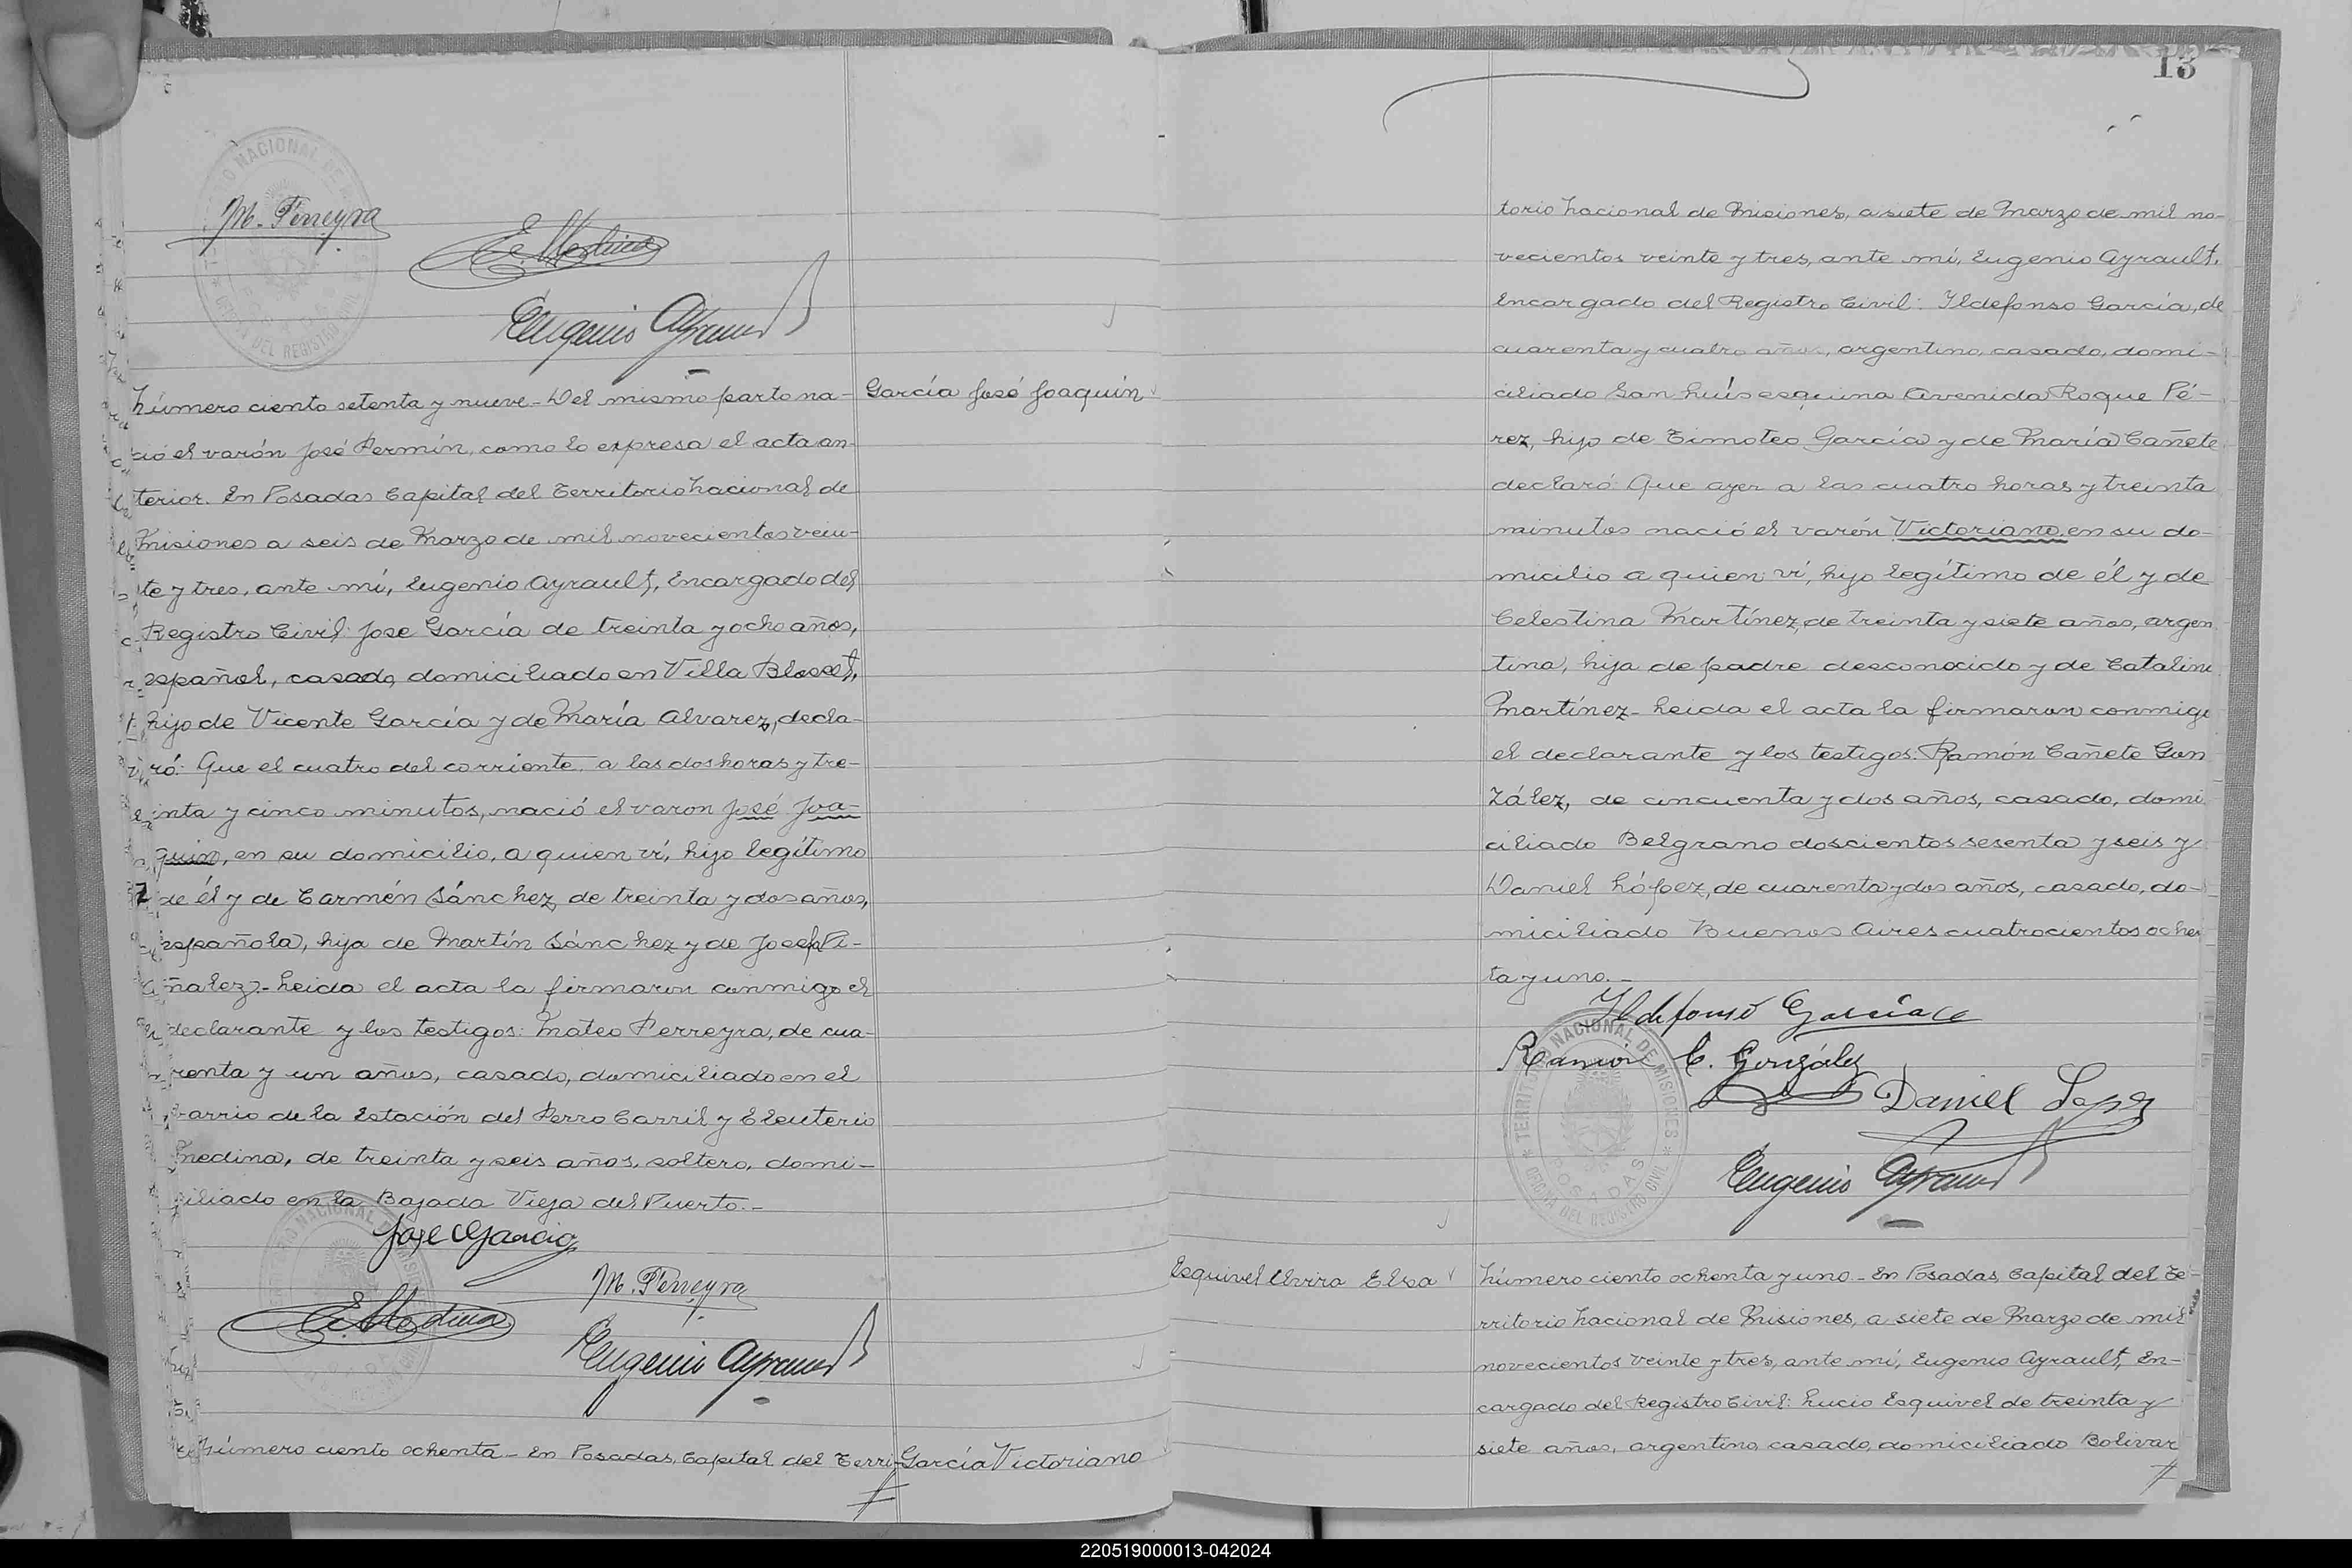 M. Ferreyra
E. Medina
Eugenio Ayrault
García José Joaquín
Número ciento setenta y nueve - Del mismo parto na-
ció el varón José Fermín, como lo expresa el acta an-
terior. En Posadas Capital del Territorio Nacional de
Misiones a seis de Marzo de mil novecientos vein-
te y tres, ante mí, Eugenio Ayrault, Encargado del
Registro Civil: Jose García de treinta y ocho años,
español, casado, domiciliado en Villa Blosset,
hijo de Vicente García y de María Alvarez, decla-
ró: Que el cuatro del corriente a las dos horas y tre-
inta y cinco minutos, nació el varon José Joa-
quin, en su domicilio, a quien ví, hijo legítimo
de él y de Carmén Sánchez, de treinta y dos años,
española, hija de Martín Sánchez y de Josefa
ñalez.- Leida el acta la firmaron conmigo el
declarante y los testigos: Mateo Ferreyra, de cua-
renta y un años, casado, domiciliado en el
barrio de la Estación del Ferro Carril y Eleuterio
Medina, de treinta y seis años, soltero, domi-
ciliado en la Bajada Vieja del Puerto.-
Jose Garcia
M. Ferreyra
E. Medina
Eugenio Ayrault
Número ciento ochenta - En Posadas, Capital del Terri-
García Victoriano
13
torio Nacional de Misiones, a siete de Marzo de mil no-
vecientos veinte y tres, ante mí, Eugenio Ayrault,
Encargado del Registro Civil: Ildefonso García, de
cuarenta y cuatro años, argentino, casado, domi-
ciliado San Luís esquina Avenida Roque Pé-
rez, hijo de Timoteo García y de María Cañete
declaró: Que ayer a las cuatro horas y treinta
minutos nació el varón Victoriano, en su do-
micilio a quien ví, hijo legítimo de él y de
Celestina Martínez, de treinta y siete años, argen
tina, hija de padre desconocido y de Catalina
Martínez - Leida el acta la firmaron conmigo
el declarante y los testigos: Ramón Cañete Gon
zález, de cincuenta y dos años, casado, domi
ciliado Belgrano doscientos sesenta y seis y
Daniel López, de cuarenta y dos años, casado, do-
miciliado Buenos Aires cuatrocientos ochen
ta y uno.-
Ildefonso García
Ramón C. González
Daniel Lopez
TERRITORIO NACIONAL DE MISIONES
POSADAS
OFICINA DEL REGISTRO CIVIL
Eugenio Ayrault
Esquivel Elvira Elsa
Número ciento ochenta y uno - En Posadas, Capital del Te-
rritorio Nacional de Misiones, a siete de Marzo de mil
novecientos veinte y tres, ante mí, Eugenio Ayrault, En-
cargado del Registro Civil: Lucio Esquivel de treinta y
siete años, argentino, casado, domiciliado Bolivar
220519000013-042024